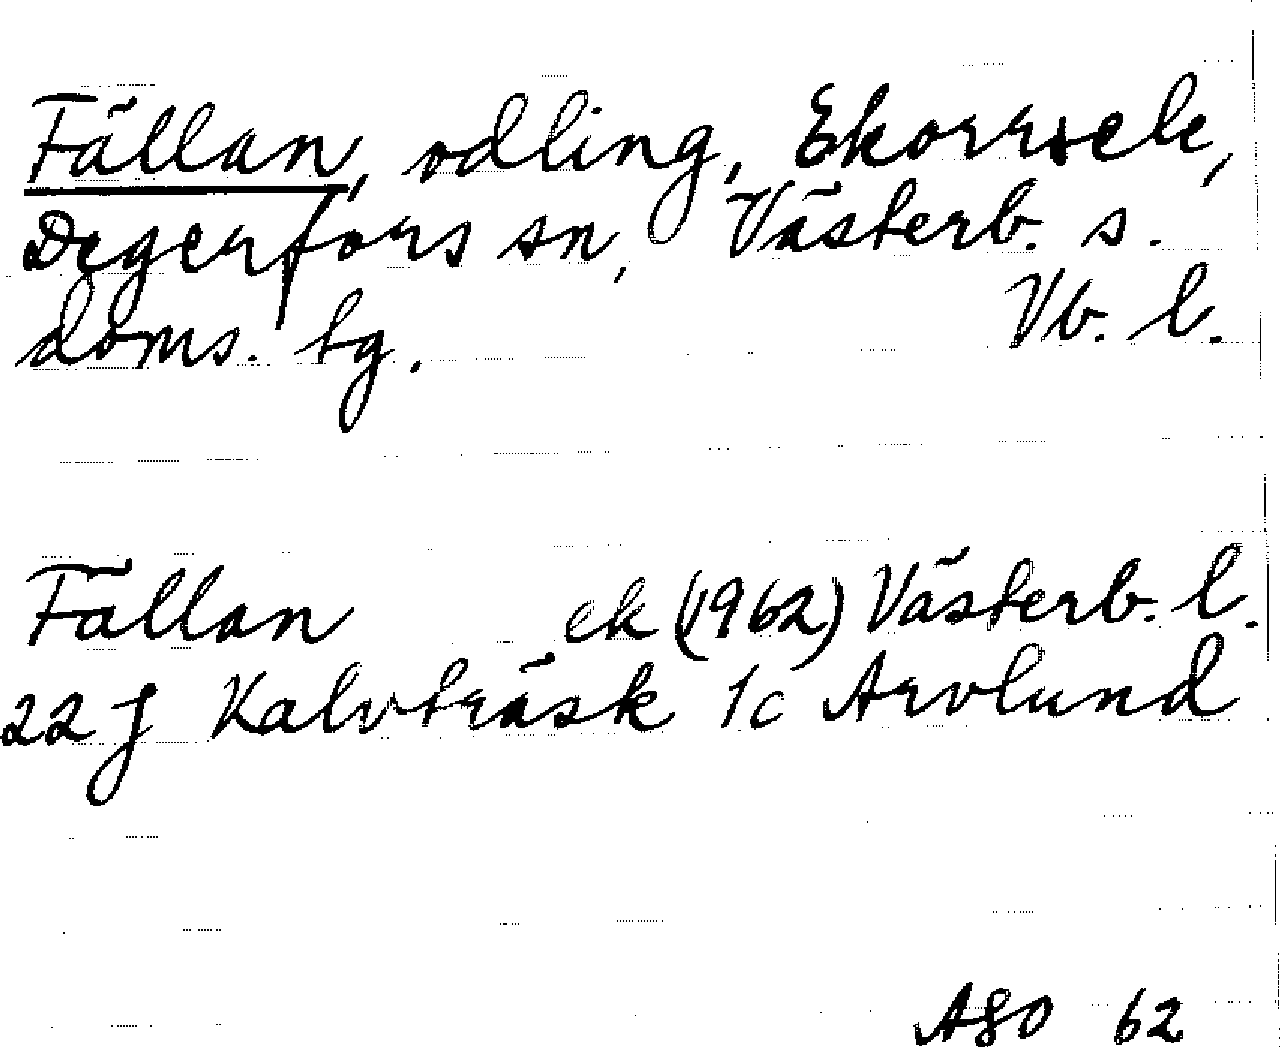 Fällan, odling, Ekorrsele,
Degerfors sn, Västerb. s.
doms. tg. Vb. l.
Fällan ek (1962) Västerb. l.
22 J Kalvträsk 1c Arvlund
ASO 62